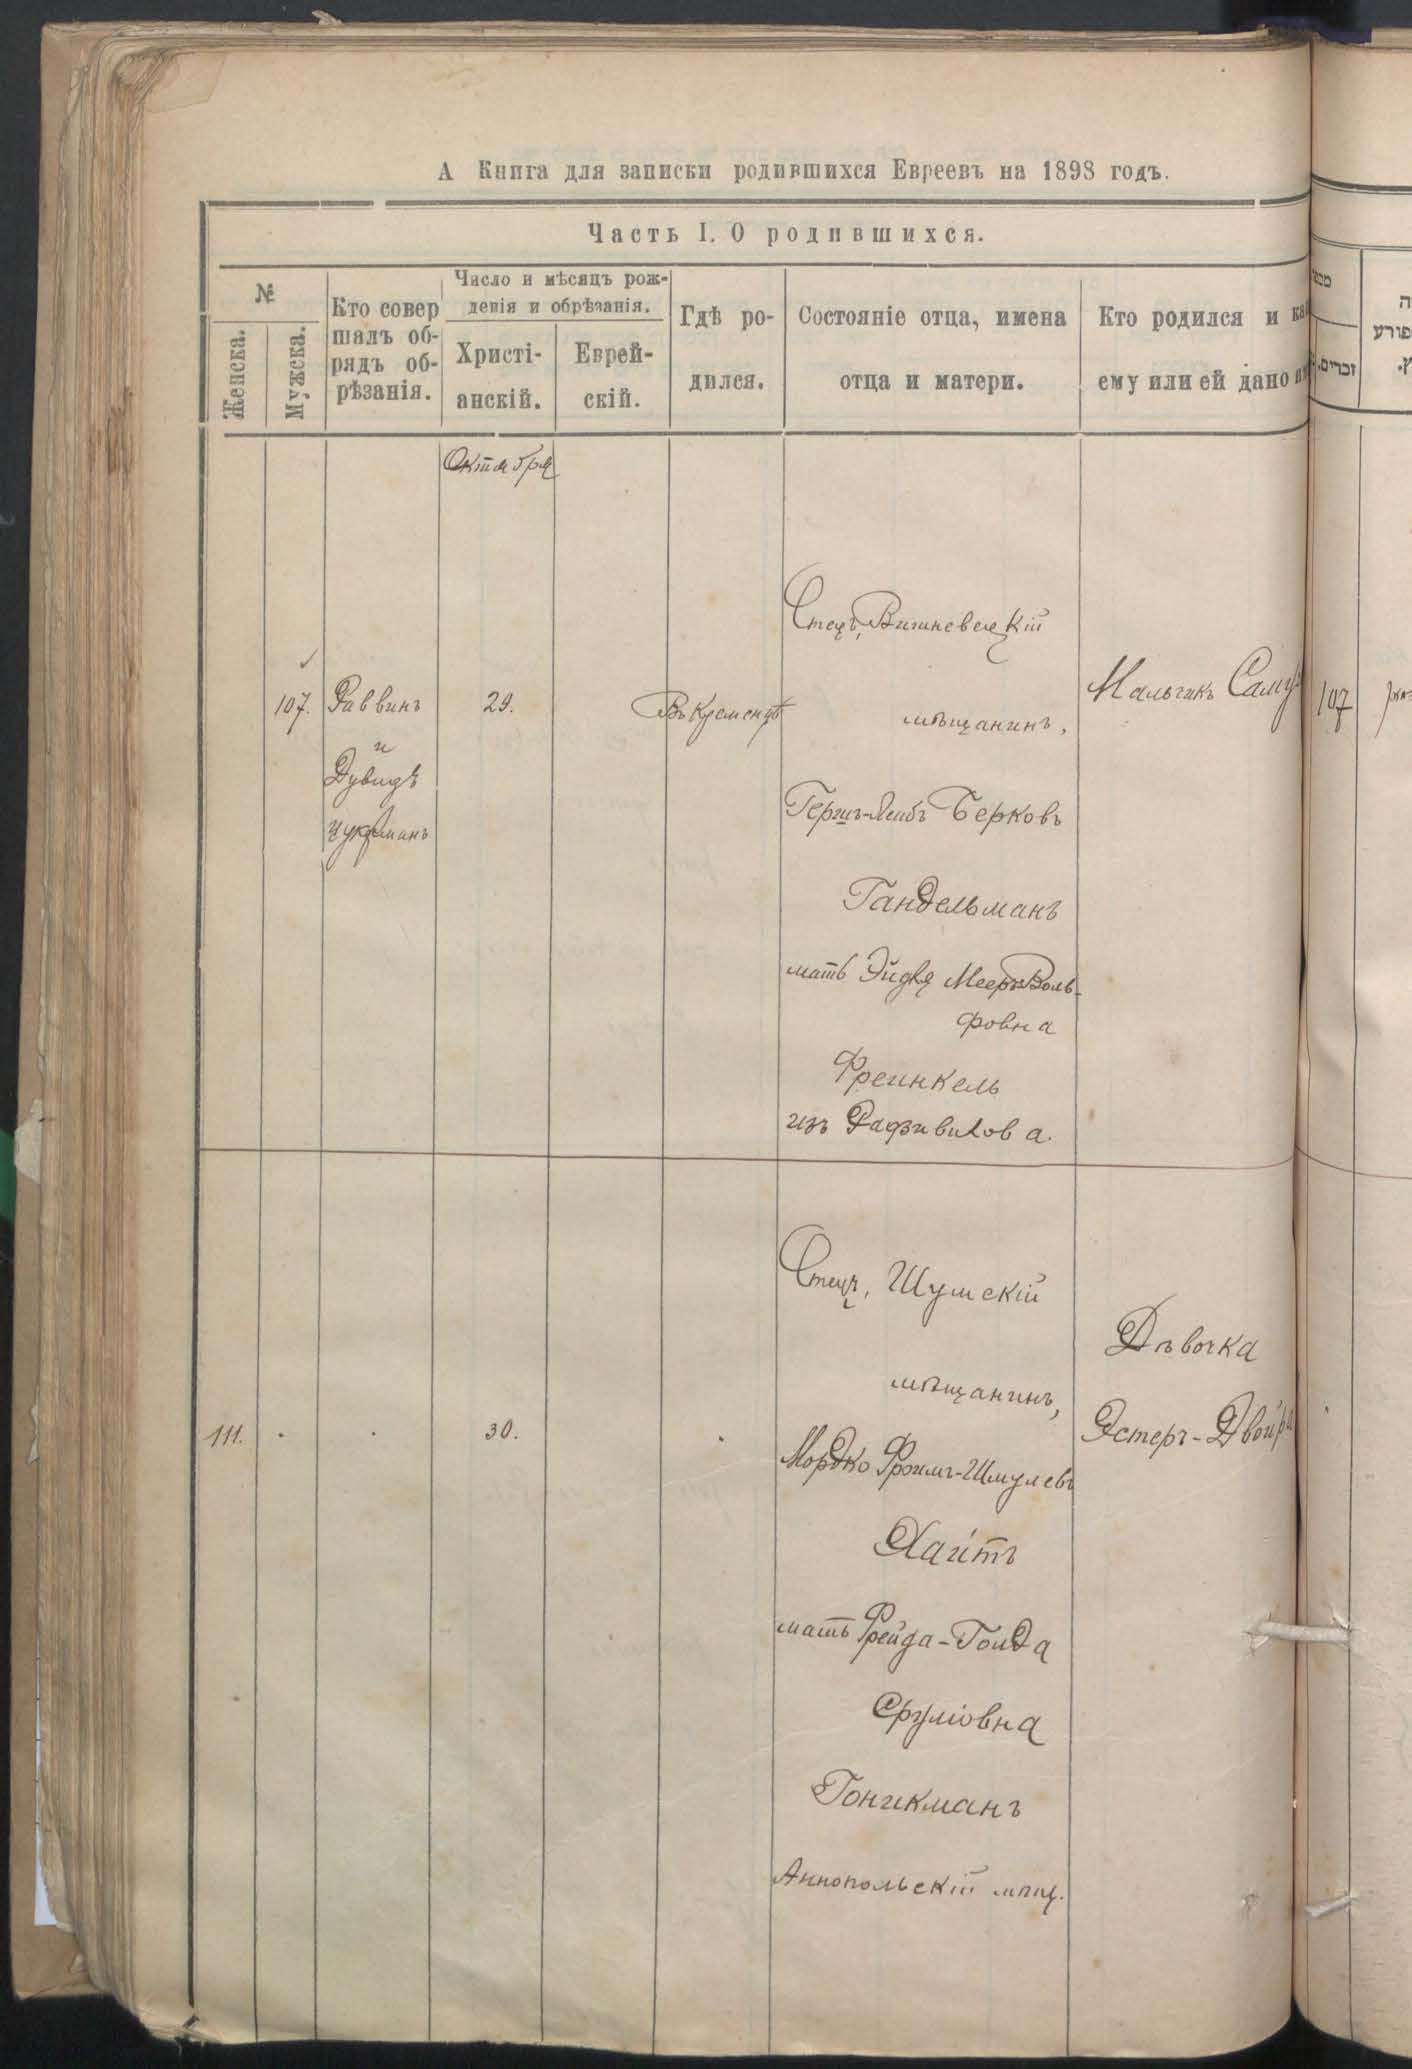 А Книга для записки родившихся Евреевъ на 1898 годъ.
Часть I. О родившихся.
№
Женска.
Мужска.
Кто совер
шалъ об-
рядъ об-
рѣзанія.
Число и мѣсяцъ рож-
денія и обрѣзанія.
Христі-
анскій.
Еврей-
скій.
Гдѣ ро-
дился.
Состояніе отца, имена
отца и матери.
Кто родился и
ему или ей дано
זכרים.
Октября
107.
Раввинъ
и
Дувидъ
Цукерманъ
29.
Въ Кременцѣ
Отецъ, Вишневецкій
мѣщанинъ,
Гершъ-Лейбъ Берковъ
Гандельманъ
мать Эйдля Мееръ-Воль-
фовна
Фреинкель
изъ Радзивилова.
Мальчикъ
107
111.
30.
Отецъ, Шумскій
мѣщанинъ,
Мордко Фроимъ-Шмулевъ
Хаитъ
мать Фрейда-Гольда
Сруліовна
Гоникманъ
Аннопольскій мѣщ.
Дѣвочка
Эстеръ-Двойра